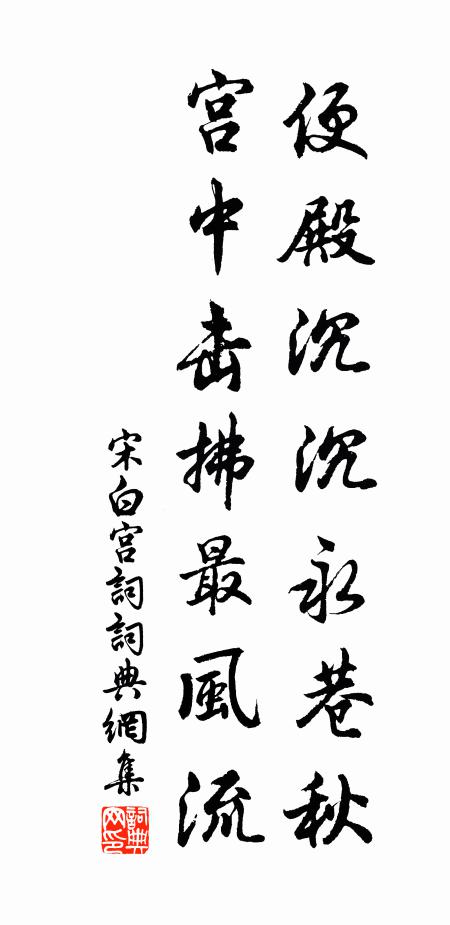 便殿沉沉永巷秋
宫中击拂最風流
宋白宫詞詞典網集
詞典网印